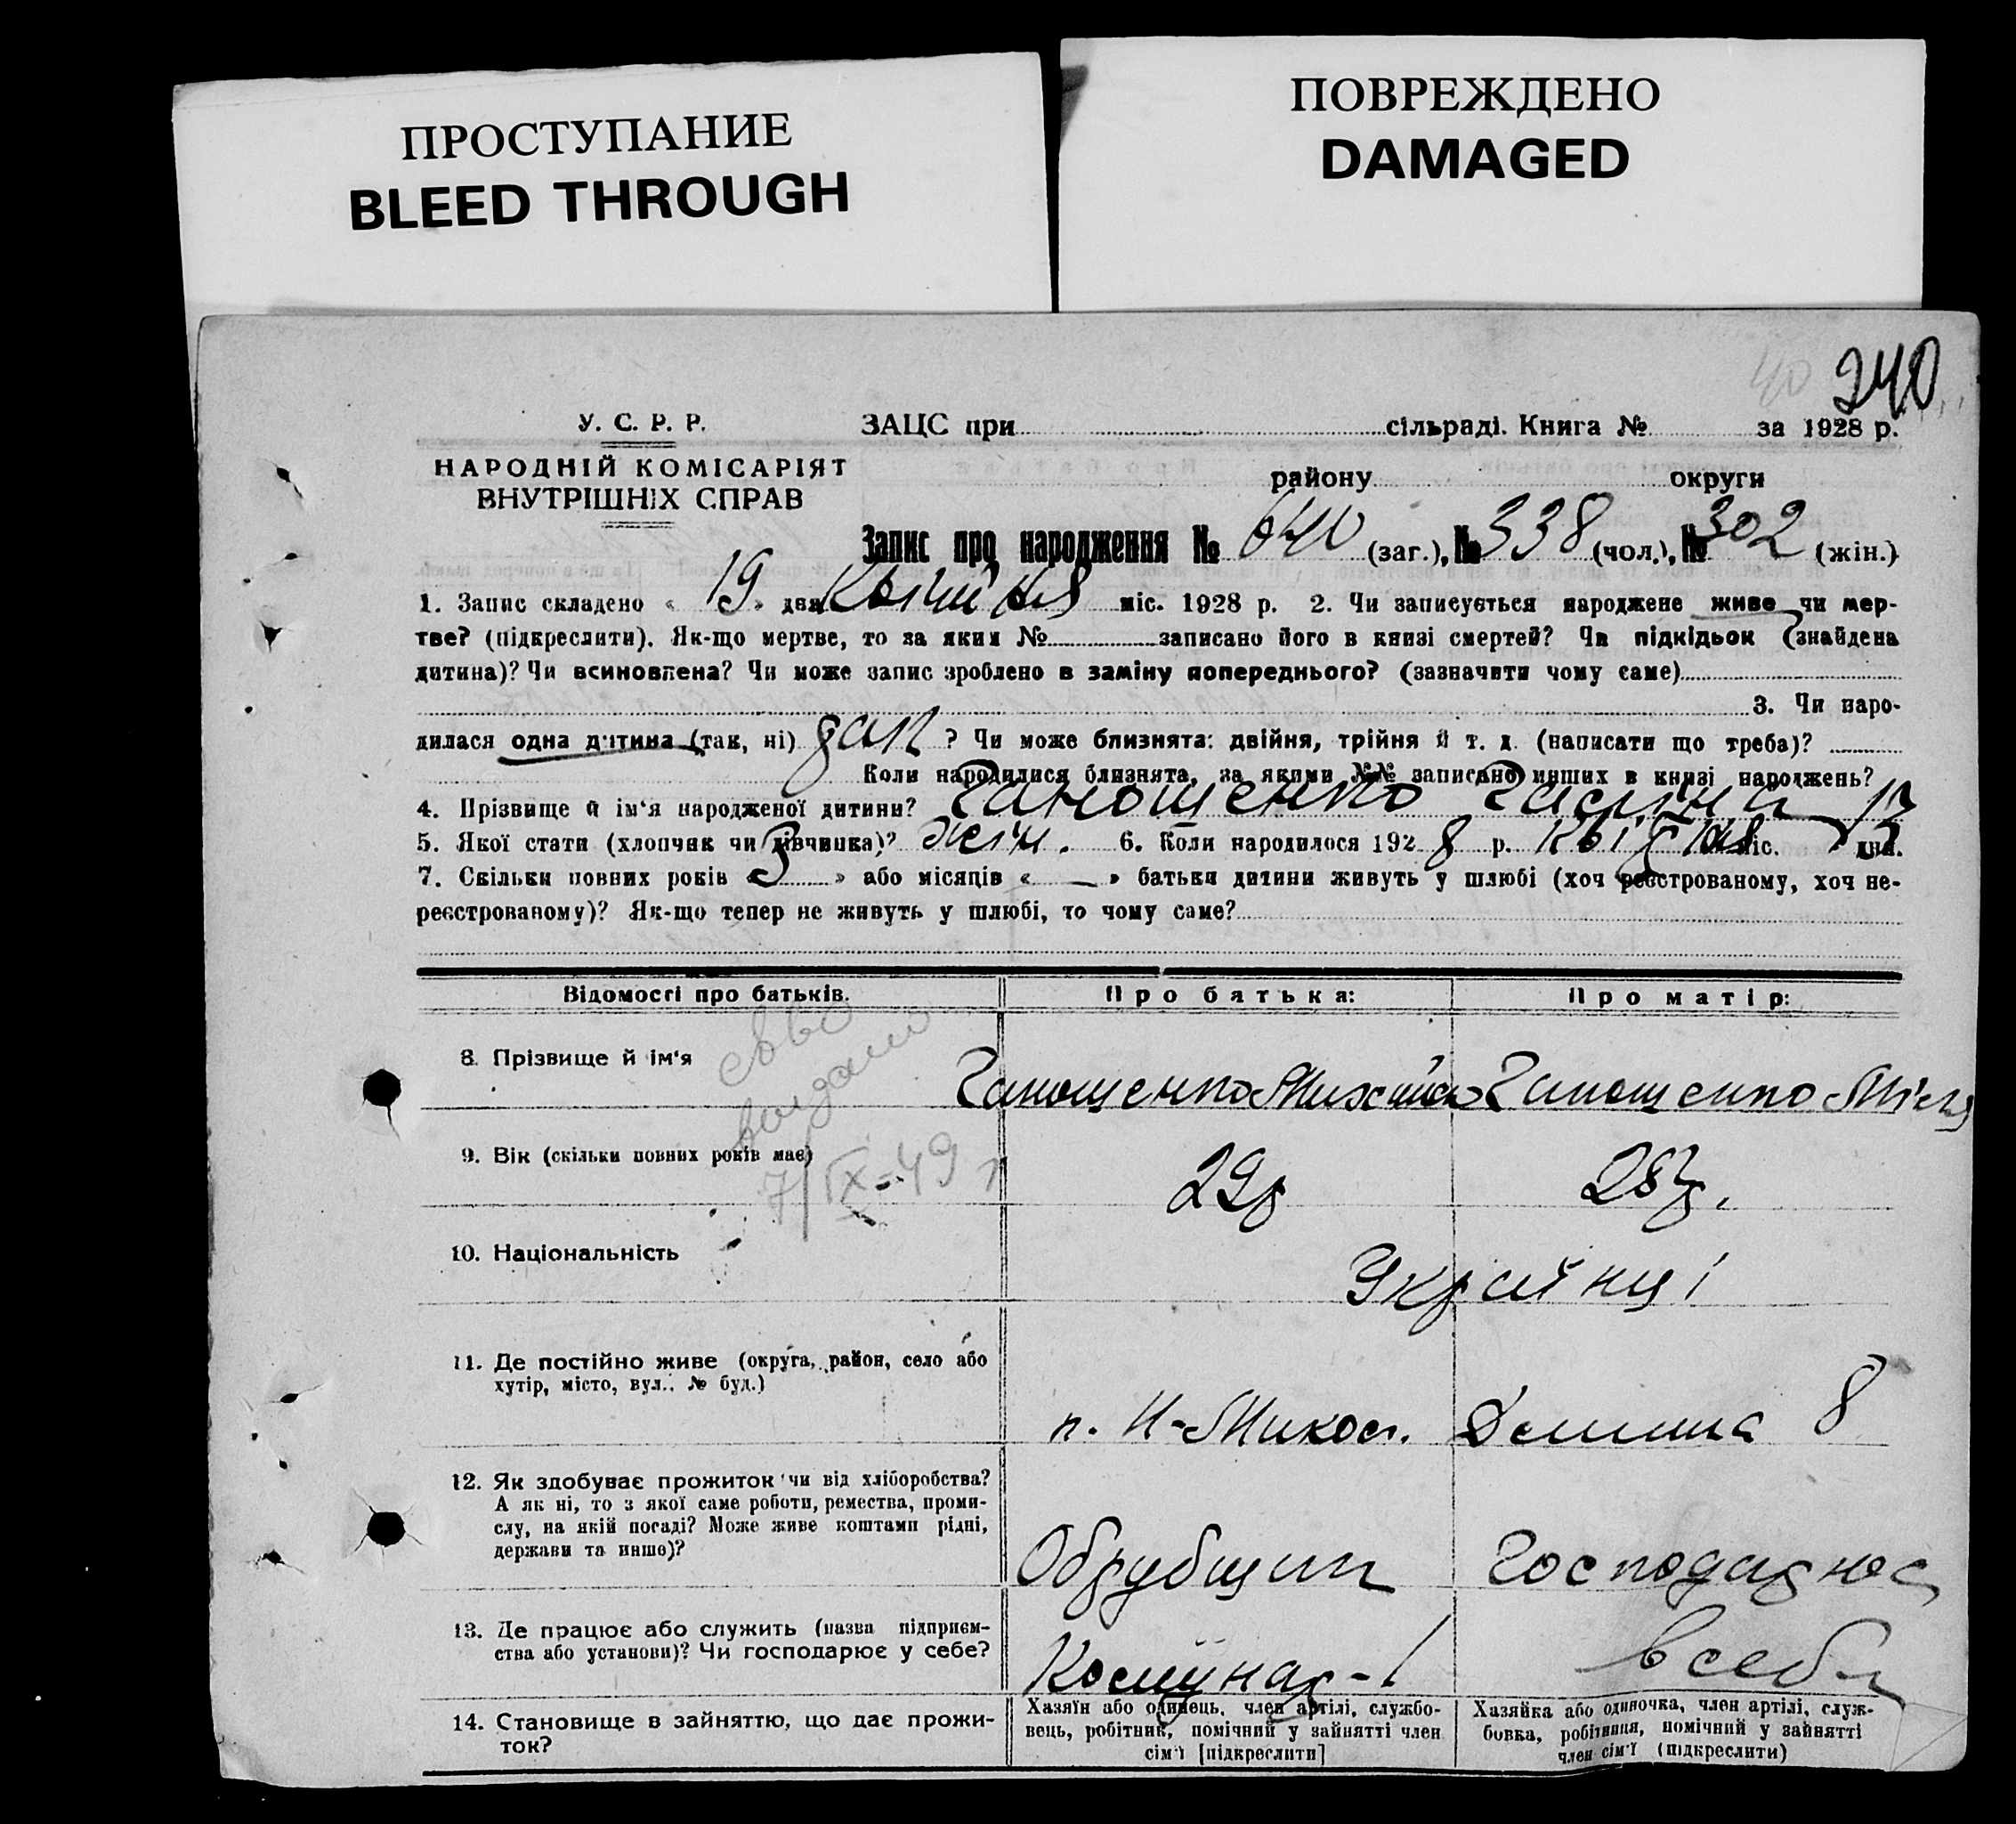 ПРОСТУПАНИЕ
BLEED THROUGH
ПОВРЕЖДЕНО
DAMAGED
40 240
У. С. Р. Р.
НАРОДНІЙ КОМІСАРІЯТ
ВНУТРІШНІХ СПРАВ
ЗАЦС при сільраді. Книга № за 1928 р.
району округи
Запис про народження № 640 (заг.), № 338 (чол.), № 302 (жін.)
1. Запис складено « 19 » дня Квітня міс. 1928 р. 2. Чи записується народжене живе чи мер-
тве? (підкреслити). Як-що мертве, то за яким № записано його в книзі смертей? Чи підкідьок (знайдена
дитина)? Чи всиновлена? Чи може запис зроблено в заміну попереднього? (зазначити чому саме)
3. Чи наро-
дилася одна дитина (так, ні) так ? Чи може близнята: двійня, трійня й т. д. (написати що треба)?
Коли народилися близнята, за якими №№ записано инших в книзі народжень?
4. Прізвище й ім'я народженої дитини? Ганощенко
5. Якої стати (хлопчик чи дівчинка)? жін. 6. Коли народилося 192 8 р. Квітня міс. дня.
7. Скільки повних років « 3 » або місяців « — » батьки дитини живуть у шлюбі (хоч реєстрованому, хоч не-
реєстрованому)? Як-що тепер не живуть у шлюбі, то чому саме?
Відомості про батьків. Про батька: Про матір:
8. Прізвище й ім'я Ганощенко Михайло Ганощенко
9. Вік (скільки повних років має) 29р 28р.
7/IX-49 г
10. Національність Українці
11. Де постійно живе (округа, район, село або
хутір, місто, вул., № буд.)
п. Н-Микол. 8
12. Як здобуває прожиток чи від хліборобства?
А як ні, то з якої саме роботи, ремества, проми-
слу, на якій посаді? Може живе коштами рідні,
держави та инше)?
Обрубщик
13. Де працює або служить (назва підприєм-
ства або установи)? Чи господарює у себе?
всебе
14. Становище в зайняттю, що дає прожи-
ток?
Хазяїн або одинець, член артілі, службо-
вець, робітник, помічний у зайнятті член
сім'ї [підкреслити]
Хазяйка або одиночка, член артілі, служ-
бовка, робітниця, помічний у зайнятті
член сім'ї (підкреслити)